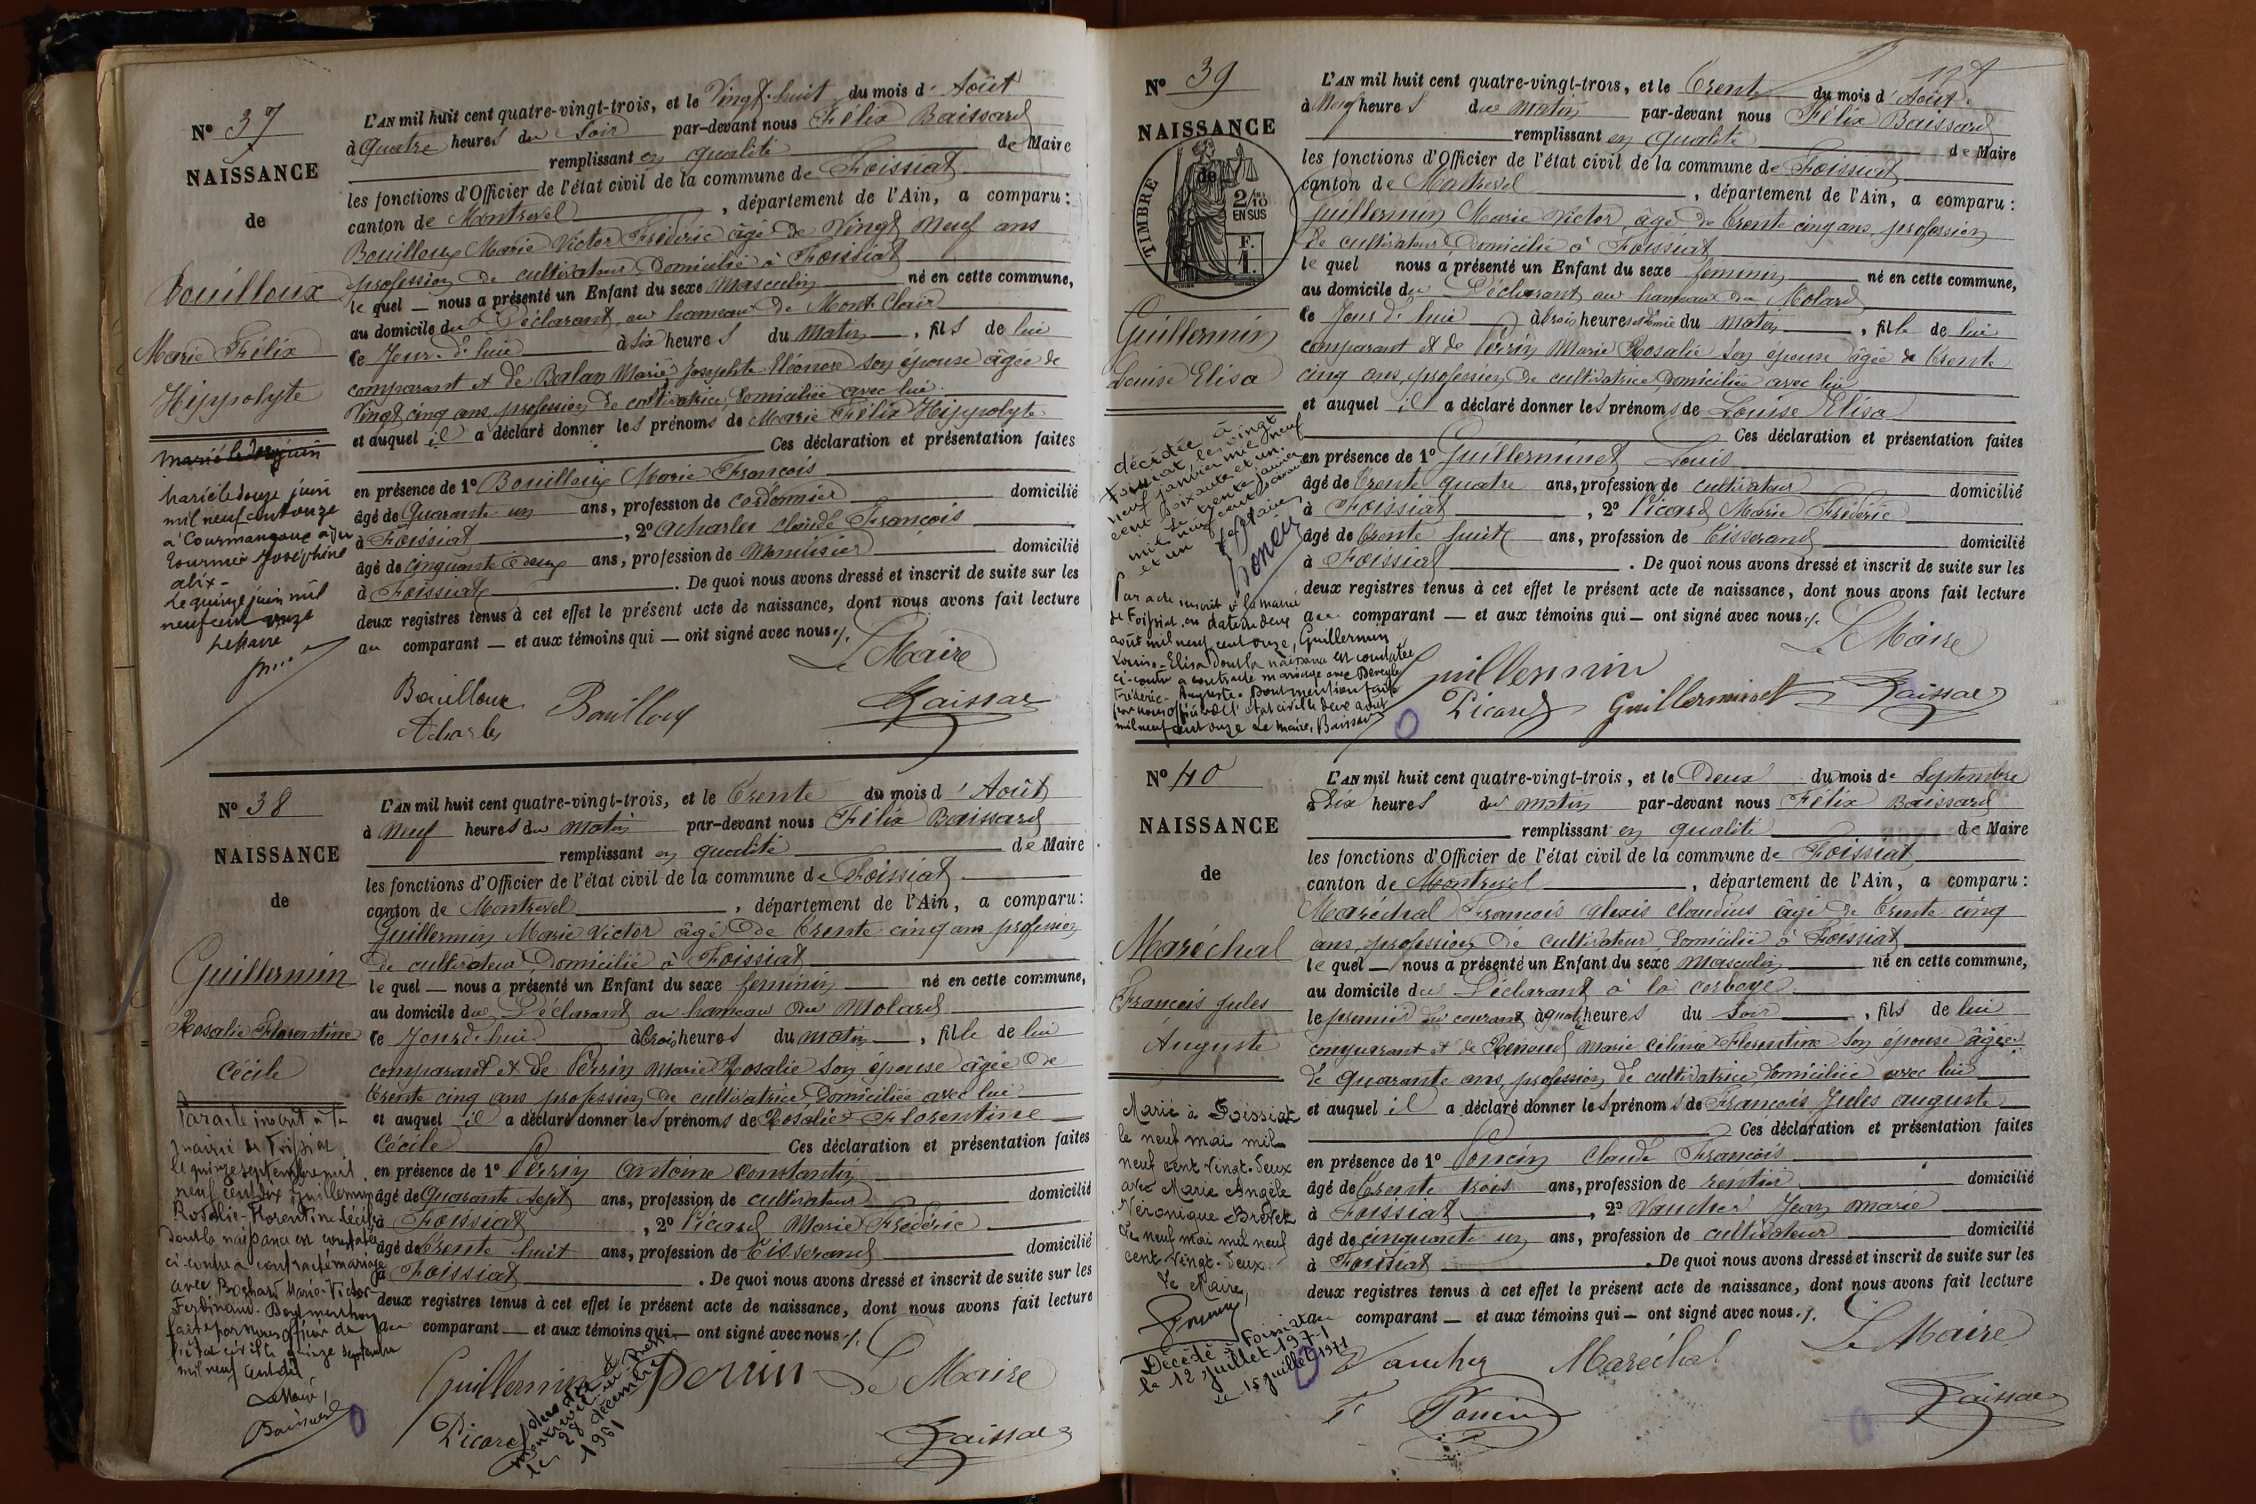 Nº 37
NAISSANCE
de
Bouilloux
Marie Félix
Hippolyte
Marié le douze juin
mil neuf cent onze
à Courmangoux avec
Fournier Joséphine
Alix -
Le quinze juin mil
neuf cent onze
Le Maire
L'AN mil huit cent quatre-vingt-trois, et le Vingt-huit du mois d' Août
à Quatre heures du Soir par-devant nous Félix Baissard
remplissant en qualité de Maire
les fonctions d'Officier de l'état civil de la commune de Foissiat
canton de Montrevel, département de l'Ain, a comparu :
Bouilloux Marie Victor Frédéric âgé de Vingt neuf ans
profession de cultivateur Domicilié à Foissiat
le quel — nous a présenté un Enfant du sexe masculin né en cette commune,
au domicile du Déclarant au hameau de Mont-Clair
ce Jour d'hui à six heures du matin, fils de lui
comparant et de Borlan Marie Josephte Eléonore son épouse âgée de
Vingt cinq ans, profession de cultivatrice domiciliée avec lui
et auquel il a déclaré donner les prénoms de Marie Félix Hippolyte
Ces déclaration et présentation faites
en présence de 1º Bouilloux Marie François
âgé de Quarante un ans, profession de cordonnier domicilié
à Foissiat, 2º Acharles Claude François
âgé de cinquante deux ans, profession de Menuisier domicilié
à Foissiat. De quoi nous avons dressé et inscrit de suite sur les
deux registres tenus à cet effet le présent acte de naissance, dont nous avons fait lecture
au comparant — et aux témoins qui — ont signé avec nous ./.
Le Maire
Bouilloux Bouilloux Baissard
Acharles
Nº 38
NAISSANCE
de
Guillermin
Rosalie Florentine
Cécile
Par acte inscrit à la
mairie de Foissiat
le quinze septembre mil
neuf cent dix Guillermin
Rosalie-Florentine Cécile
dont la naissance est constatée
ci-contre a contracté mariage
avec Bochard Marie-Victor
Ferdinand. Dont mention
faite par nous officier de
l'état civil le quinze septembre
mil neuf cent dix
Le Maire,
Baissard
L'AN mil huit cent quatre-vingt-trois, et le Trente du mois d' Août
à Neuf heures du matin par-devant nous Félix Baissard
remplissant en qualité de Maire
les fonctions d'Officier de l'état civil de la commune de Foissiat
canton de Montrevel, département de l'Ain, a comparu :
Guillermin Marie Victor âgé de Trente cinq ans profession
de cultivateur Domicilié à Foissiat
le quel — nous a présenté un Enfant du sexe feminin né en cette commune,
au domicile du Déclarant au hameau du Molard
ce Jourd'hui à trois heures du matin, fille de lui
comparant et de Perrin Marie Rosalie son épouse âgée de
Trente cinq ans profession de cultivatrice Domiciliée avec lui
et auquel il a déclaré donner les prénoms de Rosalie Florentine
Cécile Ces déclaration et présentation faites
en présence de 1º Perrin Antoine Constantin
âgé de Quarante sept ans, profession de cultivateur domicilié
à Foissiat, 2º Picard Marie Frédéric
âgé de Trente huit ans, profession de Tisserand domicilié
à Foissiat. De quoi nous avons dressé et inscrit de suite sur les
deux registres tenus à cet effet le présent acte de naissance, dont nous avons fait lecture
au comparant — et aux témoins qui — ont signé avec nous ./.
Guillermin Perrin Le Maire
Picard Baissard
le 28 décembre
1961
Nº 39
NAISSANCE
de
TIMBRE
2/10
EN SUS
F.
1.
Guillermin
Louise Elisa
décédée à
Foissiat le vingt
neuf janvier mil neuf
cent soixante et un.
Le trente janvier
mil neuf cent soixante
et un
Le Maire,
Poncin
Par acte inscrit à la mairie
de Foissiat, en date du deux
août mil neuf cent onze, Guillermin
Louise-Elisa dont la naissance est constatée
ci-contre a contracté mariage avec
Frédéric-Auguste. Dont mention faite
par nous officier de l'état civil le deux août
mil neuf cent onze Le Maire, Baissard
L'AN mil huit cent quatre-vingt-trois, et le Trente du mois d' Août
à Neuf heures du matin par-devant nous Félix Baissard
remplissant en qualité de Maire
les fonctions d'Officier de l'état civil de la commune de Foissiat
canton de Montrevel, département de l'Ain, a comparu :
Guillermin Marie Victor, âgé de Trente cinq ans, profession
de cultivateur Domicilié à Foissiat
le quel nous a présenté un Enfant du sexe feminin né en cette commune,
au domicile du Déclarant au hameau du Molard
ce Jour d'hui à trois heures et demie du matin, fille de lui
comparant et de Perrin Marie Rosalie son épouse âgée de Trente
cinq ans, profession de cultivatrice domiciliée avec lui
et auquel il a déclaré donner les prénoms de Louise Elisa
Ces déclaration et présentation faites
en présence de 1º Guilleminet Louis
âgé de Trente quatre ans, profession de cultivateur domicilié
à Foissiat, 2º Picard Marie Frédéric
âgé de Trente huit ans, profession de Tisserand domicilié
à Foissiat. De quoi nous avons dressé et inscrit de suite sur les
deux registres tenus à cet effet le présent acte de naissance, dont nous avons fait lecture
au comparant — et aux témoins qui — ont signé avec nous ./.
Le Maire
Guillermin
Picard Guillerminet Baissard
Nº 40
NAISSANCE
de
Maréchal
François Jules
Auguste
Marié à Foissiat
le neuf mai mil
neuf cent vingt-deux
avec Marie Angèle
Véronique Brevet
Le neuf mai mil neuf
cent vingt-deux.
Le Maire,
Décédé à Foissiat
le 12 juillet 1971
Le 15 juillet 1971
L'AN mil huit cent quatre-vingt-trois, et le Deux du mois de Septembre
à Six heures du matin par-devant nous Félix Baissard
remplissant en qualité de Maire
les fonctions d'Officier de l'état civil de la commune de Foissiat
canton de Montrevel, département de l'Ain, a comparu :
Maréchal François Alexis Claudius âgé de Trente cinq
ans, profession de cultivateur domicilié à Foissiat
le quel — nous a présenté un Enfant du sexe masculin né en cette commune,
au domicile du Déclarant à la corbaye
le premier du courant à quatre heures du soir, fils de lui
comparant et de Renoud Marie Célinie Florentine son épouse âgée
de Quarante ans, profession de cultivatrice, domiciliée avec lui
et auquel il a déclaré donner les prénoms de François Jules Auguste
Ces déclaration et présentation faites
en présence de 1º Poncin Claude François
âgé de Trente trois ans, profession de rentier domicilié
à Foissiat, 2º Vaucher Jean Marie
âgé de cinquante un ans, profession de cultivateur domicilié
à Foissiat. De quoi nous avons dressé et inscrit de suite sur les
deux registres tenus à cet effet le présent acte de naissance, dont nous avons fait lecture
comparant — et aux témoins qui — ont signé avec nous ./.
Le Maire
Vaucher Maréchal
F. Poncin Baissard